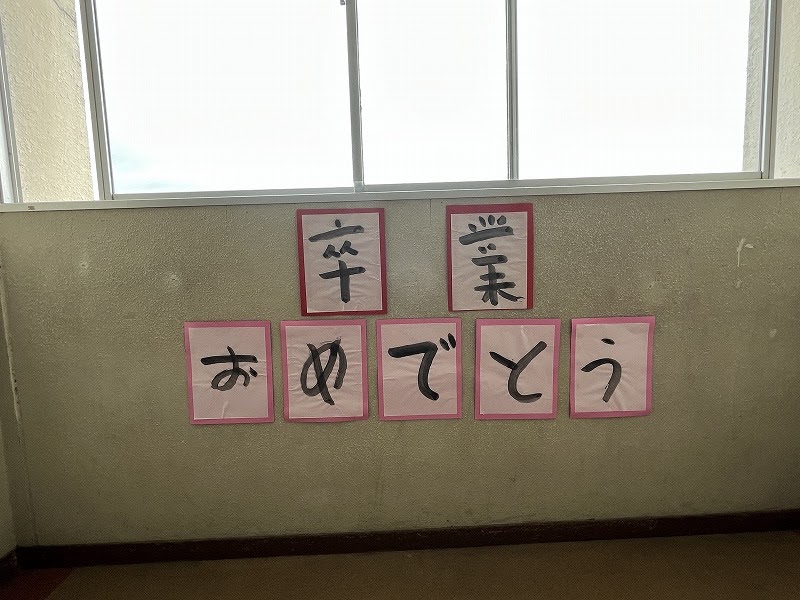 卒業
おめでとう